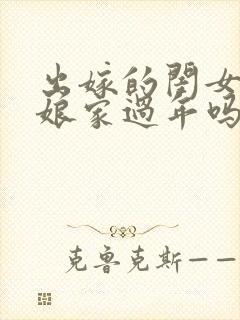 出嫁的闺女
娘家过年吗
克鲁克斯——